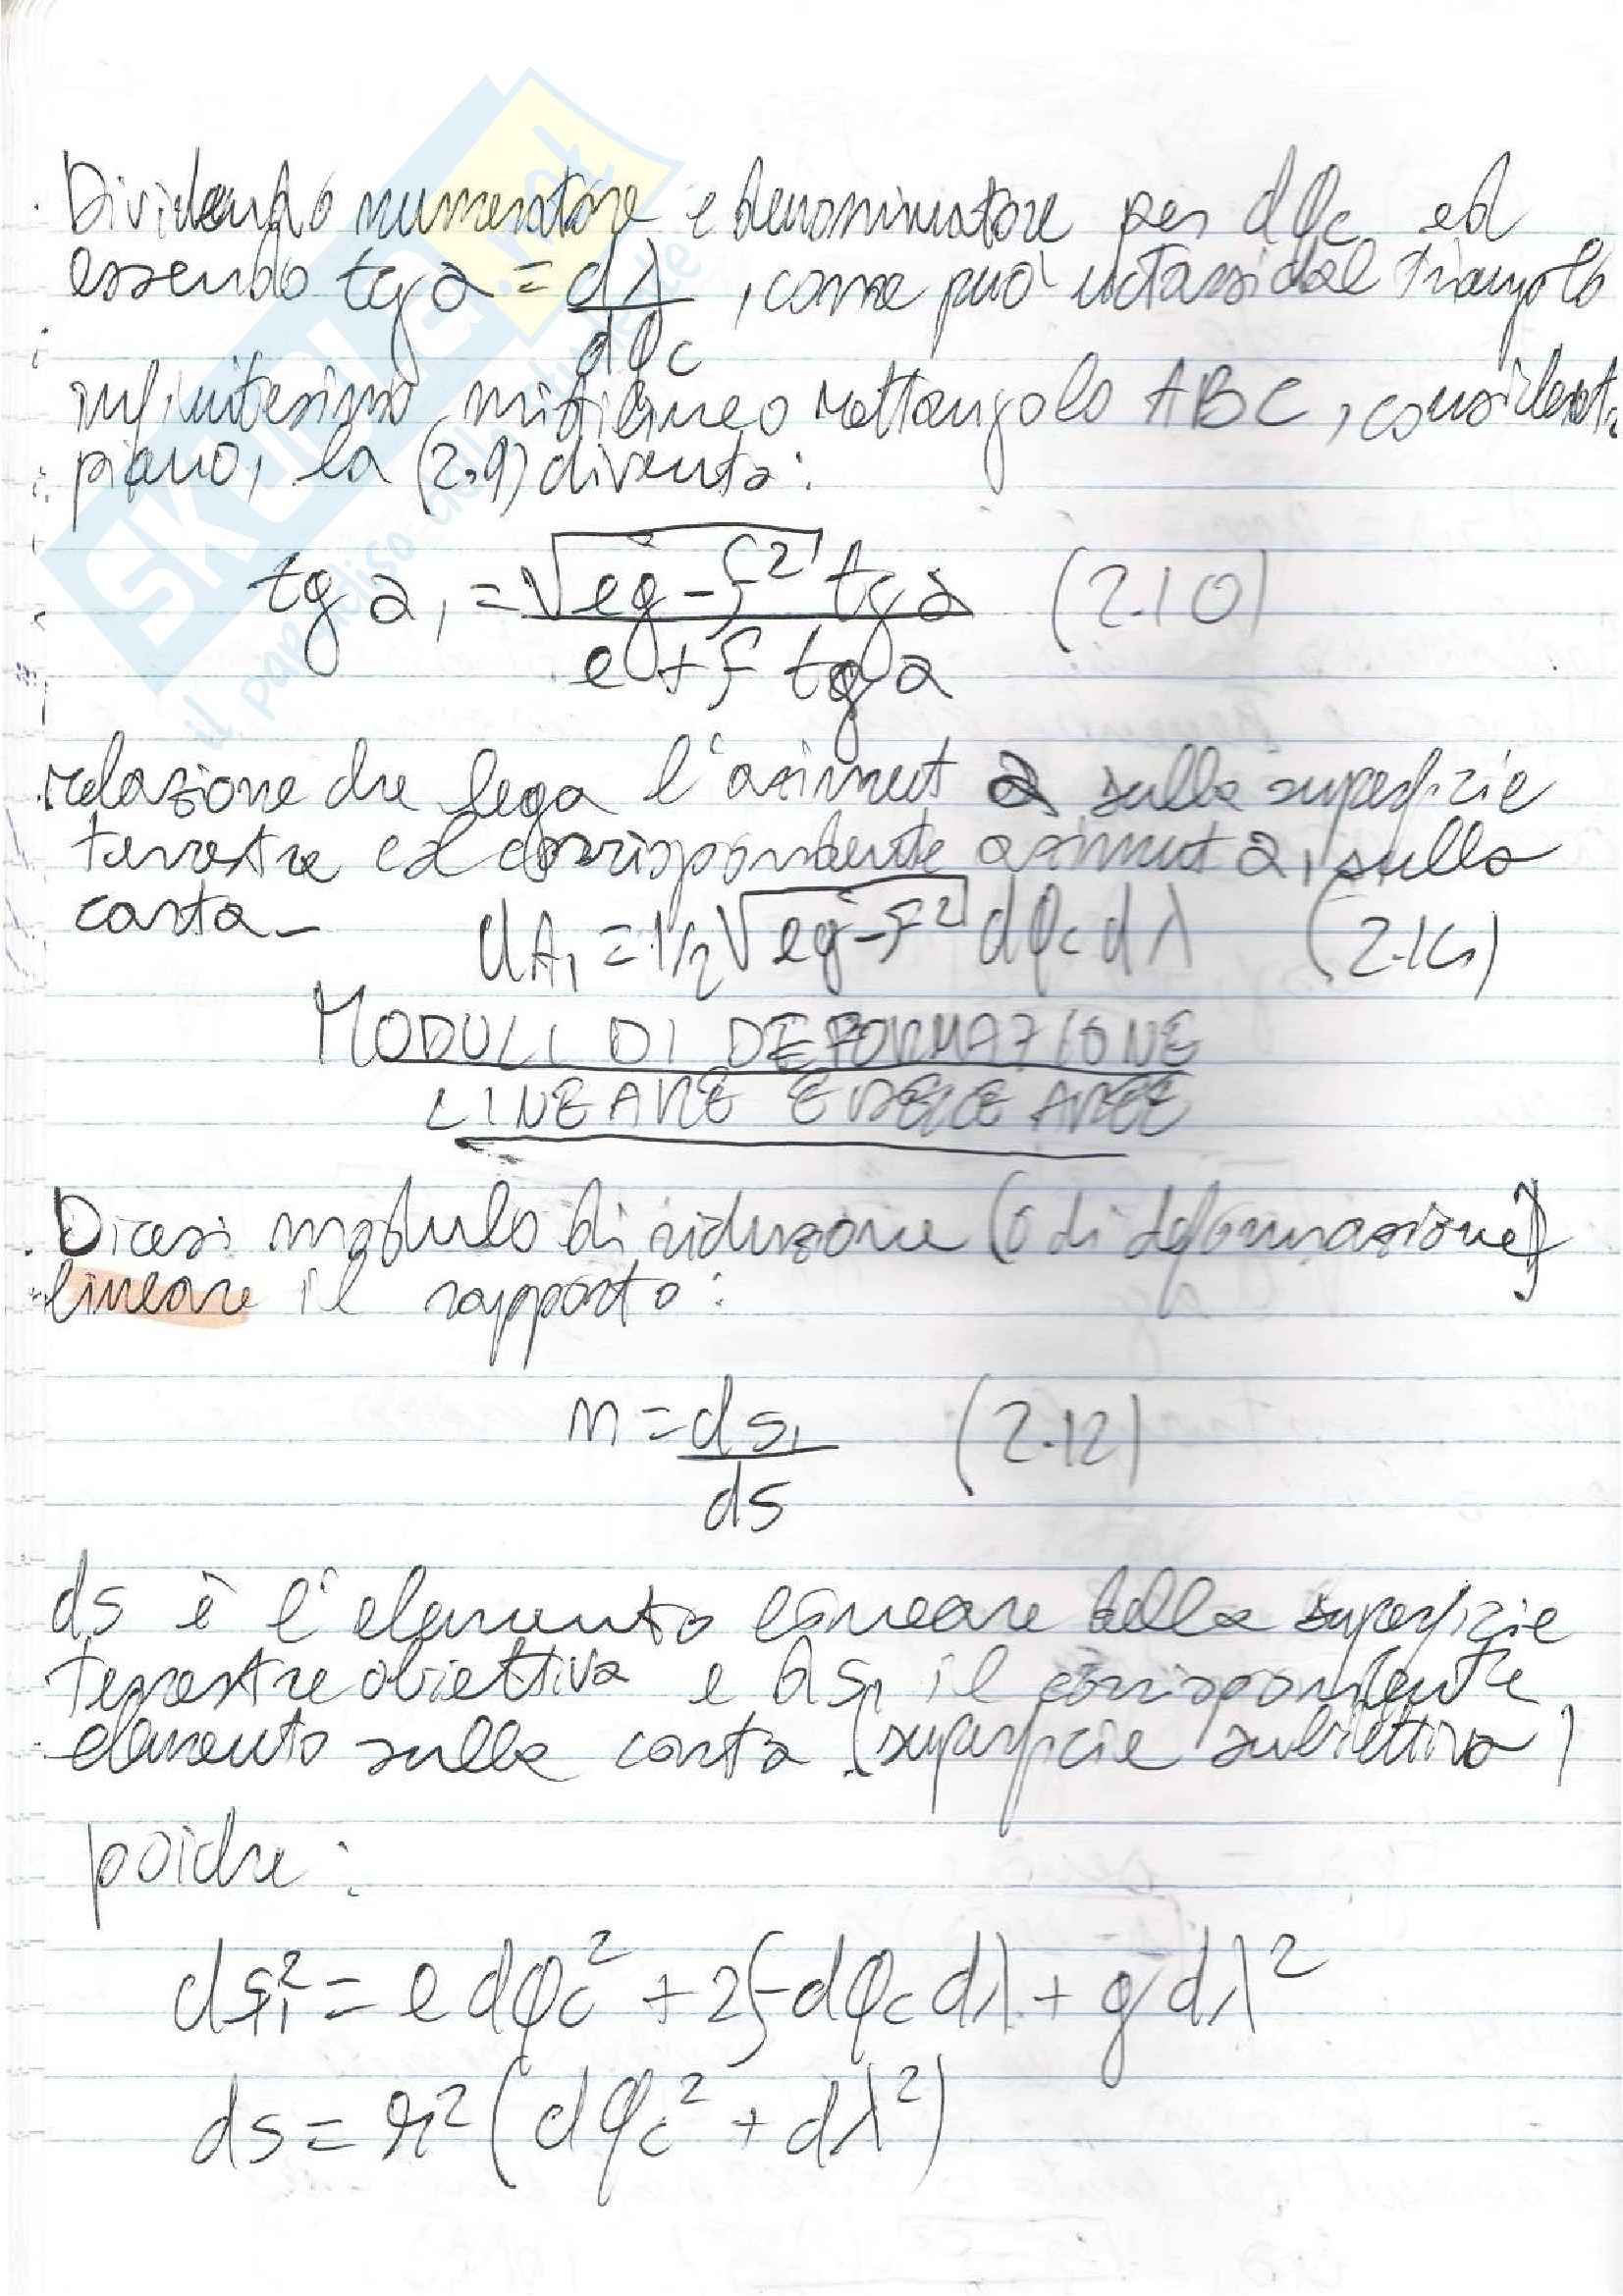 Dividendo numeratore e denominatore per dφc ed
essendo tg α = dλ/dφc, come può notarsi dal triangolo
infinitesimo mistilineo rettangolo ABC, considerat.
piano, la (2.9) diventa:
tg α₁ = √(eg-f²) tg α / (e + f tg α) (2.10)
relazione che lega l'azimut α sulla superficie
terrestre ed il corrispondente azimut α₁ sulla
carta-
dA₁ = 1/2 √(eg-f²) dφc dλ
MODULI DI DEFORMAZIONE
LINEARE E DELLE AREE
Dicesi modulo di riduzione (o di deformazione)
lineare il rapporto:
m = ds₁/ds (2.12)
ds è l'elemento lineare della superficie
terrestre obiettiva e ds₁ il corrispondente
elemento sulla carta (superficie subiettiva)
poiche:
ds₁² = e dφc² + 2f dφc dλ + g dλ²
ds = r² (dφc² + dλ²)
SKUOLA.net
il paradiso dello studente